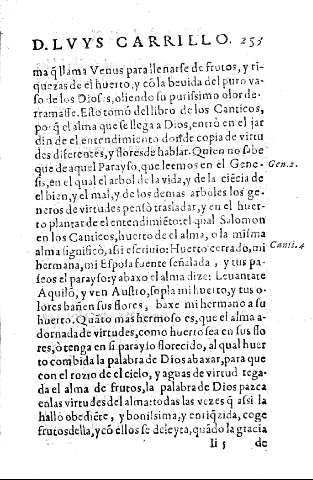 D. LVYS CARRILLO. 253
ma q̃ llama Venus para llenarse de frutos, y ri-
quezas de el huerto, y cõ la beuida del puro va-
so de los Dioses, oliendo su purissimo olor de-
rramasse. Esto tomó del libro de los Canticos,
porq̃ el alma que se llega a Dios, entrò en el jar
din de el entendimiento donde copia de virtu
des diferentes, y flores de hablar. Quien no sabe
que de aquel Parayso, que leemos en el Gene- Gen. 2.
sis, en el qual el arbol de la vida, y de la ciẽcia de
el bien, y el mal, y de los demas arboles los ge-
neros de virtudes pensò trasladar, y en el huer-
to plantar de el entendimiẽto: el qual Salomon
en los Canticos, huerto de el alma, o la misma
alma significò, assi escriuio: Huerto cerrado, mi Canti. 4
hermana, mi Esposa fuente señalada, y tus pa-
seos el parayso: y abaxo el alma dize: Leuantate
Aquilõ, y ven Austro, sopla mi huerto, y tus o-
lores bañen sus flores, baxe mi hermano a su
huerto. Quãto mas hermoso es, que el alma a-
dornada de virtudes, como huerto sea en sus flo
res, ò tenga en sì parayso florecido, al qual huer
to combida la palabra de Dios abaxar, para que
con el rozio de el cielo, y aguas de virtud rega-
da el alma de frutos, la palabra de Dios pazca
en las virtudes del alma: todas las vezes q̃ assi la
hallò obediẽte, y bonissima, y enriq̃zida, coge
frutos della, y cõ ellos se deleyta, quãdo la gracia
Ii 5 de